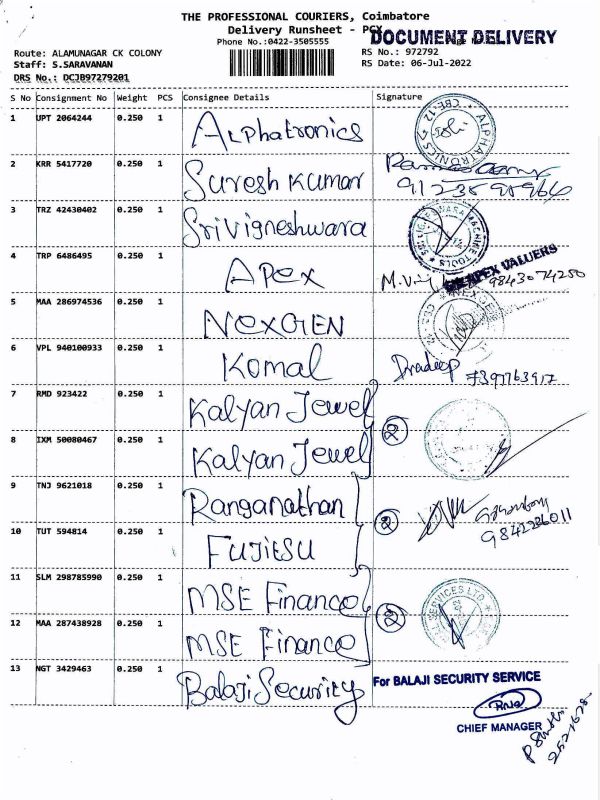 THE PROFESSIONAL COURIERS, Coimbatore
Delivery Runsheet -
DOCUMENT DELIVERY
Phone No.:0422-3505555
Route: ALAMUNAGAR CK COLONY
RS No.: 972792
Staff: S.SARAVANAN
RS Date: 06-Jul-2022
DRS No.: DCJB97279201
S No Consignment No Weight PCS Consignee Details Signature
1 UPT 2064244 0.250 1 Alphatronics
ALPHATRONICS
2 KRR 5417720 0.250 1 Suresh Kumar
3 TRZ 42430402 0.250 1 Srivigneshwara
MACHINE TOOLS
4 TRP 6486495 0.250 1 Apex
APEX VALUERS
9843074250
5 MAA 286974536 0.250 1 NEXGEN
6 VPL 940100933 0.250 1 Komal Pradeep
7397763917
7 RMD 923422 0.250 1 Kalyan Jewel
2
8 IXM 50080467 0.250 1 Kalyan Jewel
9 TNJ 9621018 0.250 1 Ranganathan
2
10 TUT 594814 0.250 1 FUJITSU
11 SLM 298785990 0.250 1 MSE Finance
SERVICES LTD
2
12 MAA 287438928 0.250 1 MSE Finance
13 NGT 3429463 0.250 1 Balaji Security
For BALAJI SECURITY SERVICE
CHIEF MANAGER